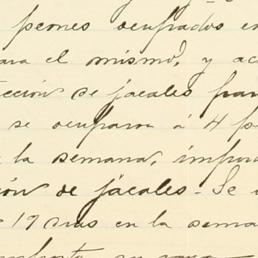 peones ocupados en
para el mismo, y ac
cción de jacales par
se ocuparon á 4 p
la semana, impor
ión de jacales. Se
19 dias en la sema